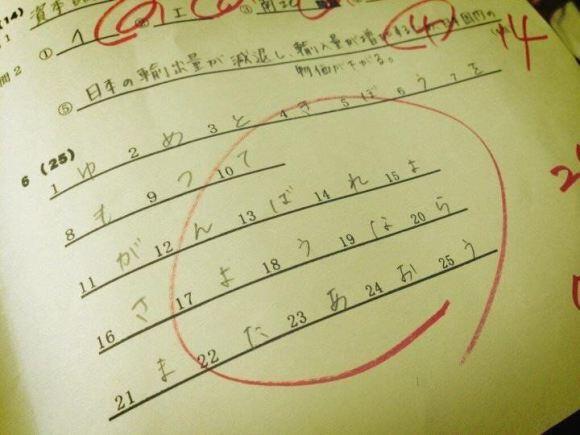 (14) 資本
① イ ② エ ③
⑤ 日本の輸出量が減退し、輸入量が増加する 国内の
物価が下がる。
4
6 (25)
1 ゆ 2 め 3 と 4 き 5 ぼ 6 う 7 を
8 も 9 つ 10 て
11 が 12 ん 13 ば 14 れ 15 よ
16 さ 17 よ 18 う 19 な 20 ら
21 ま 22 た 23 あ 24 お 25 う